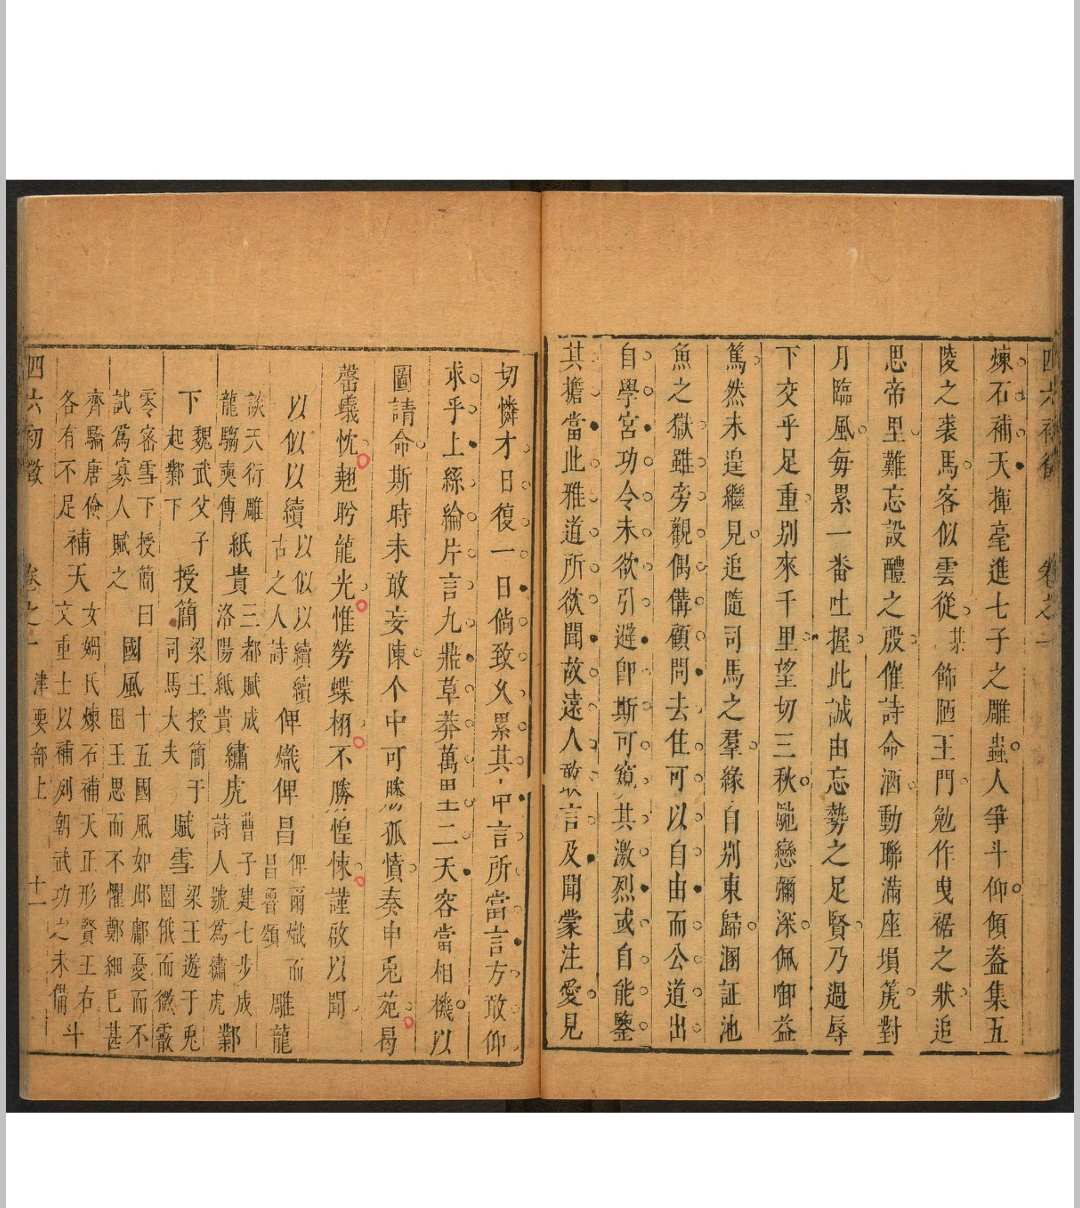 四六初徵 卷之一
煉石補天揮毫進七子之雕蟲人爭斗仰傾葢集五
陵之裘馬客似雲從某飾陋王門勉作曳裾之狀追
思帝里難忘設醴之殷催詩命酒動聯滿座塤箎對
月臨風每累一番吐握此誠由忘勢之足賢乃過辱
下交乎足重别來千里望切三秋馳戀彌深佩啣益
篤然未遑繼見追隨司馬之羣緣自别東歸溷証池
魚之獄雖旁觀偶備顧問去住可以自由而公道出
自學宮功令未欲引避卽斯可窺其激烈或自能鑒
其擔當此雅道所欲聞故遠人敢言及聞蒙注愛見
切憐才日復一日倘致久累其中言所當言方敢仰
求乎上絲綸片言九鼎草莽萬里二天容當相機以
圖請命斯時未敢妄陳个中可勝孤憤奏申兎苑曷
罄蟻忱翹聆龍光惟勞蝶栩不勝惶悚謹啟以聞
以似以續 以似以續續古之人詩 俾熾俾昌 俾爾熾而昌魯頌 雕龍
談天衍雕龍騶奭傳 紙貴 三都賦成洛陽紙貴 繡虎 曹子建七步成詩人號為繡虎 鄴
下 魏武父子起鄴下 授簡 梁王授簡于司馬大夫 賦雪 梁王遊于兎園俄而微霰
零密雪下授簡曰試爲寡人賦之 國風 十五國風如邶鄘憂而不困王思而不懼鄭細已甚
齊驕唐儉各有不足 補天 女媧氏煉石補天正形贊王右文重士以補列朝武功之未備 斗
四六初徵 卷之一 津要部上 十一